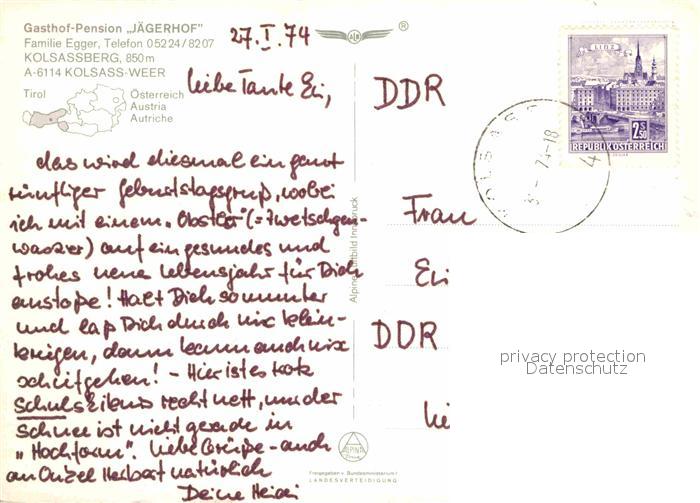 Gasthof-Pension „JÄGERHOF"
Familie Egger, Telefon 05224/8207
KOLSASSBERG, 850 m
A-6114 KOLSASS-WEER
Tirol
Österreich
Austria
Autriche
27.I.74
Liebe Tante Evi,
das wird diesmal ein ganz
zünftiger Geburtstagsgruß, wobei
ich mit einem „Obstler" (= Zwetschgen-
wasser) auf ein gesundes und
frohes neue Lebensjahr für Dich
anstoße! Halt Dich so munter
und laß Dich durch nix klein-
kriegen, dann kann auch nix
schiefgehen! - Hier ist es trotz
Schulskikurs recht nett, nur der
Schnee ist nicht gerade in
„Hochform". Liebe Grüße - auch
an Onkel Herbert natürlich
Deine Heidi
Alpine Luftbild Innsbruck
®
DDR
Frau
DDR
LINZ
2 S 50
REPUBLIK ÖSTERREICH
KOLSASS
ALPINA
Freigegeben v. Bundesministerium f.
LANDESVERTEIDIGUNG
privacy protection
Datenschutz